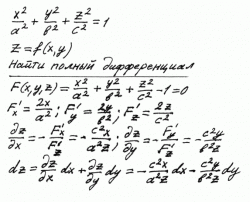 x²/a² + y²/b² + z²/c² = 1
z = f(x,y)
Найти полный дифференциал
F(x,y,z) = x²/a² + y²/b² + z²/c² - 1 = 0
F'x = 2x/a²; F'y = 2y/b²; F'z = 2z/c²
∂z/∂x = - F'x/F'z = - c²x/a²z; ∂z/∂y = - F'y/F'z = - c²y/b²z
dz = ∂z/∂x dx + ∂z/∂y dy = - c²x/a²z dx - c²y/b²z dy